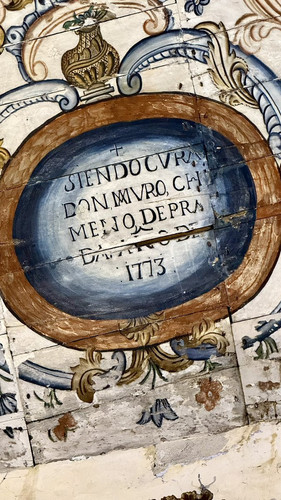 ✝
SIENDO CURA
DON MURO, CHI
MENO DE PRA
DA, AÑO DE
1773